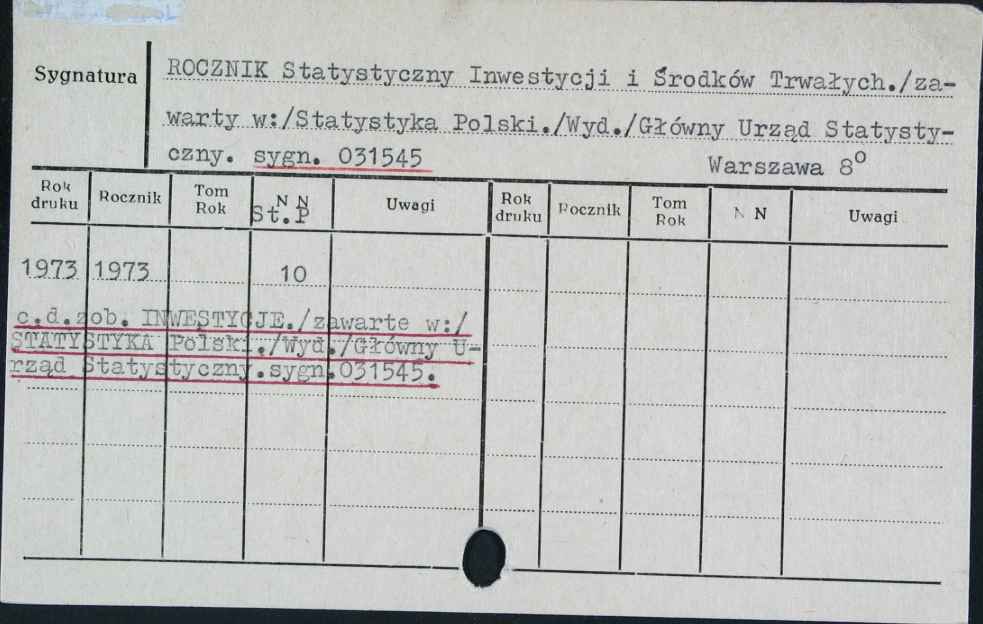 Sygnatura
ROCZNIK Statystyczny Inwestycji i Środków Trwałych./za-
warty w:/Statystyka Polski./Wyd./Główny Urząd Statysty-
czny. sygn. 031545 Warszawa 8°
Rok druku Rocznik Tom Rok N N St.P Uwagi Rok druku Rocznik Tom Rok N N Uwagi
1973 1973 10
c.d.zob. INWESTYCJE./zawarte w:/
STATYSTYKA Polski./Wyd./Główny U-
rząd Statystyczny.sygn.031545.